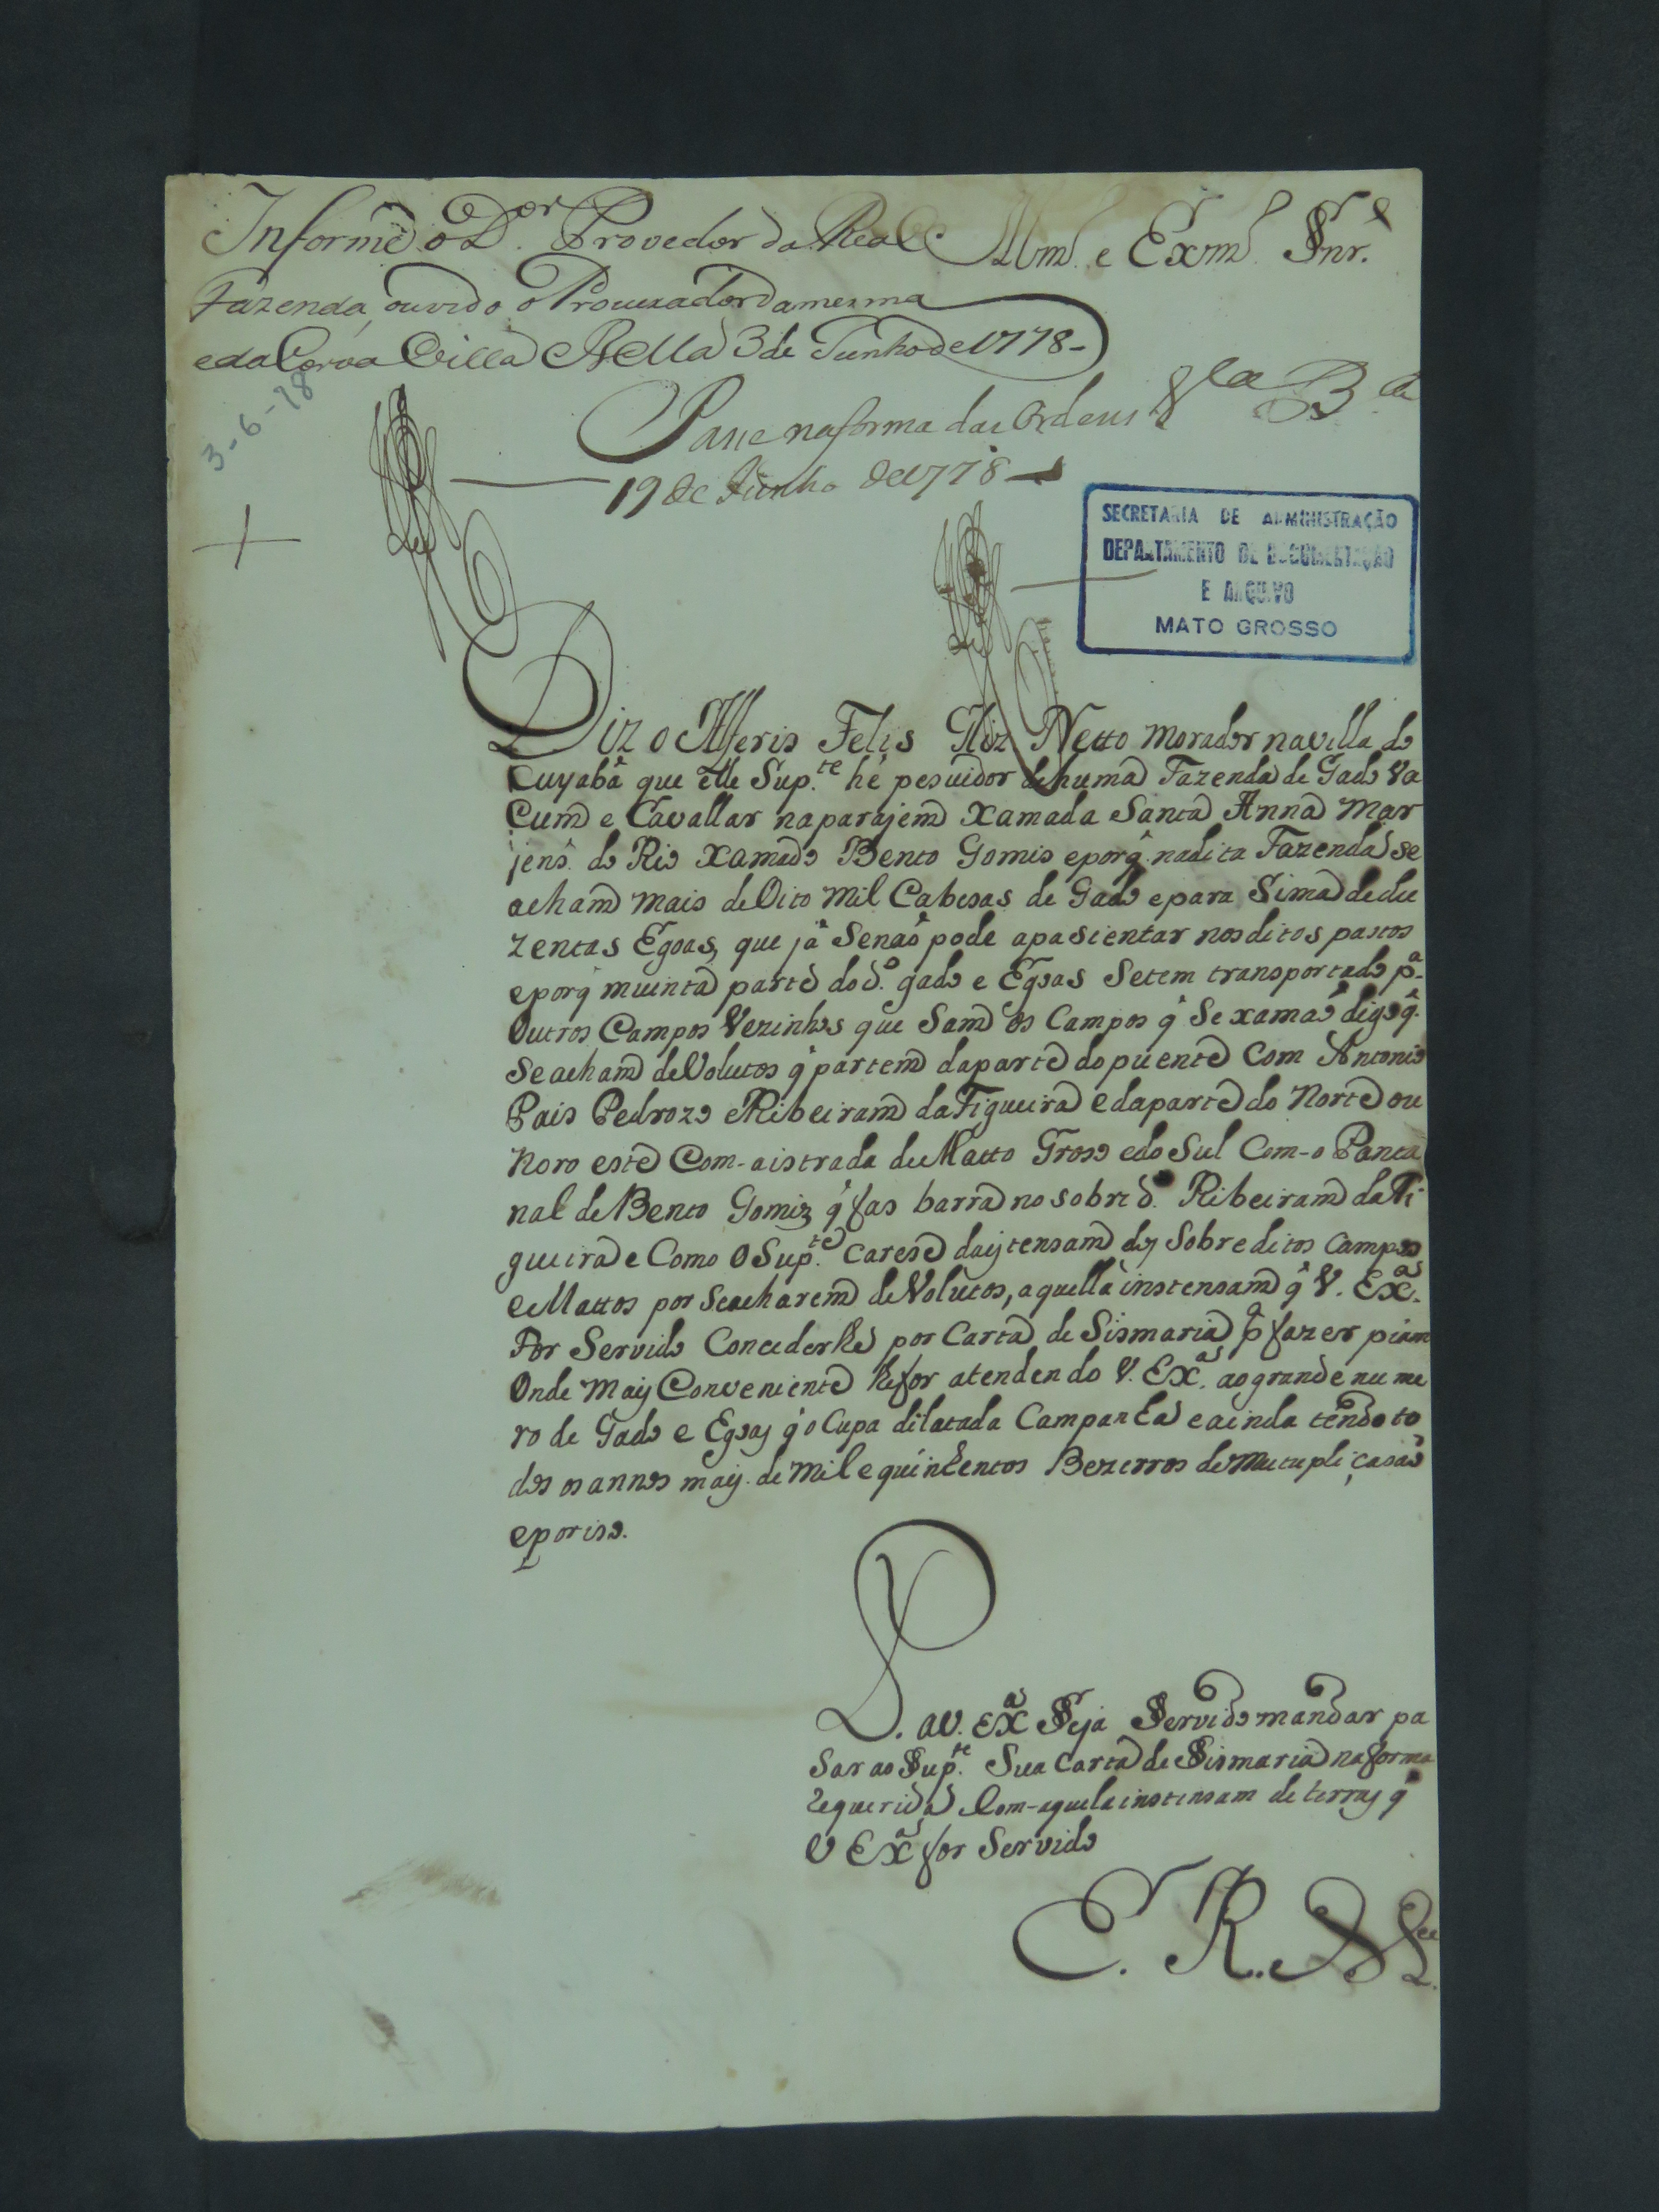 Informe o D.or Provedor da Real
Fazenda, ouvido o Procurador da mesma
e da Coroa Villa Bella 3 de Junho de 1778-
Illm.o e Exm.o Snr.
3-6-78
Passe na forma das Ordens V.la B.la
19 de Junho de 1778
SECRETARIA DE ADMINISTRAÇÃO
DEPARTAMENTO DE DOCUMENTAÇÃO
E ARQUIVO
MATO GROSSO
Diz o Alferis Felis Netto morador na villa do
Cuyabâ que elle Sup.te hé pesuidor de huma Fazenda de Gado Va
Cum e Cavallar na parajem Xamada Santa Anna Mar
jens. do Rio Xamado Bento Gomis e porq̃ na dita Fazenda se
acham mais de Oito Mil Cabesas de Gado e para Sima de du
zentas Egoas, que já Senaõ pode apasientar nos ditos pastos
e porq̃ muinta parte do d.o gado e Egoas Setem transportado p.a
Outros Campos Vezinhos que Sam os Campos q̃ Se xamaõ digo q̃
Se acham deVolutos q̃ partem da parte do puente Com Antonio
Pais Pedrozo e Ribeiram da Figueira e da parte do Norte ou
Noro este Com-aistrada du Matto Groso e do Sul Com-o Panta
nal de Bento Gomiz q̃ fas barra no sobre d.o Ribeiram da Fi
gueira e Como o Sup.te carese da ÿtensam dos Sobre ditos Campos
e Mattos por Se acharem deVolutos, aquella instensam q̃ V. Ex.as
For Servido Concederlhe por Carta de Sismaria p.a fazer piam
Onde Maÿ Conveniente lhe for atendendo V. Ex.as ao grande nume
ro de Gado e Egoas q̃ o Cupa dilatada Campanha e ainda tendo to
dos os annos maÿ de Mil e quinhentos Bezerros de Mutuplicasaõ
e por iso.
P. a V. Ex.a Seja Servido mandar pa
Sar ao Sup.te Sua Carta de Sismaria na forma
requerida Com-aquela instensam de terras q̃
V Ex.as for Servido
E. R. M.ce